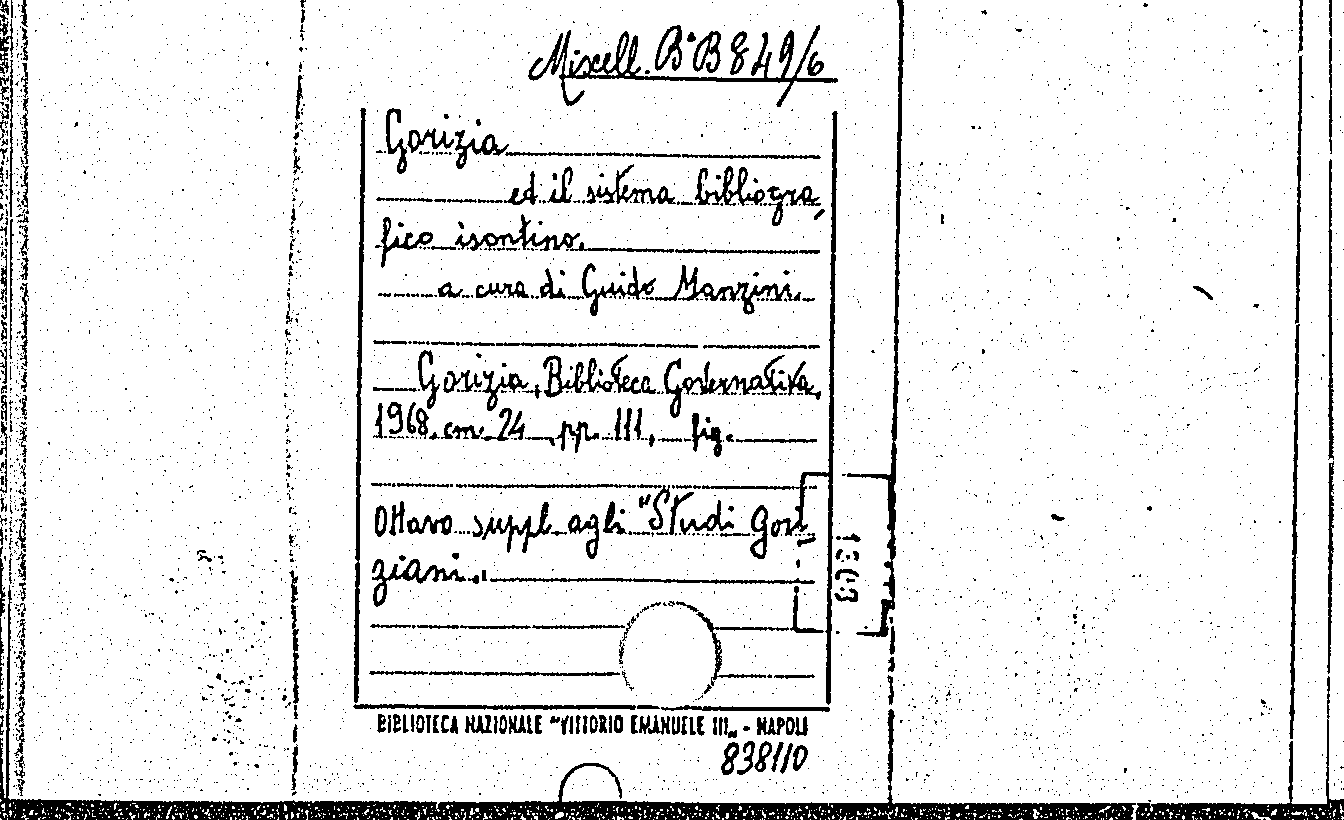 Miscell. Bª B 849/6
Gorizia
ed il sistema bibliogra,
fico isontino.
a cura di Guido Manzini.
Gorizia, Biblioteca Governativa,
1968. cm. 24, pp. 111, fig.
Ottavo suppl. agli "Studi Gori
ziani".
BIBLIOTECA NAZIONALE "VITTORIO EMANUELE III„ - NAPOLI
838110